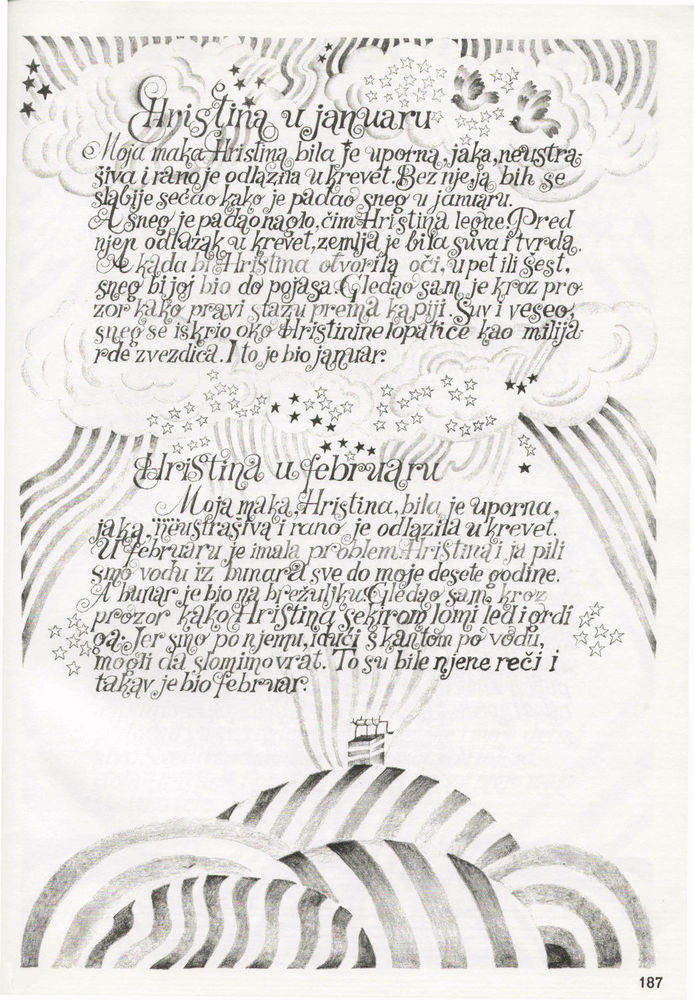 Hristina u januaru
Moja maka Hristina, bila je uporna, jaka, neustra-
šiva i rano je odlazila u krevet. Bez nje, ja bih se
slabije sećao kako je padao sneg u januaru.
A sneg je padao naglo, čim Hristina legne. Pred
njen odlazak u krevet, zemlja je bila suva i tvrda.
A kada bi Hristina otvorila oči, u pet ili šest,
sneg bi joj bio do pojasa. Gledao sam je kroz pro-
zor kako pravi stazu prema kapiji. Suv i veseo,
sneg se iskrio oko Hristinine lopatice kao milija-
rde zvezdica. I to je bio januar.
Hristina u februaru
Moja maka, Hristina, bila je uporna,
jaka, neustrašiva i rano je odlazila u krevet.
U februaru je imala problem. Hristina i ja pili
smo vodu iz bunara sve do moje desete godine.
A bunar je bio na brežuljku. Gledao sam kroz
prozor kako Hristina sekirom lomi led i grdi
ga. Jer smo po njemu, idući s kantom po vodu,
mogli da slomimo vrat. To su bile njene reči i
takav je bio februar.
187